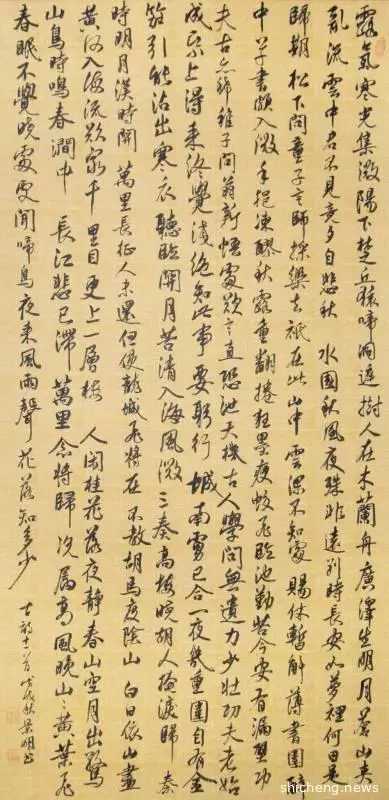 露氣寒光集微陽下楚丘猿啼洞庭樹人在木蘭舟廣澤生明月蒼山夾
亂流雲中君不見竟夕自悲秋 水國秋風夜殊非遠別時長安如夢裡何日是
歸期松下問童子言師採藥去祇在此山中雲深不知處 賜休暫解簿書圍醉
中草書頗入微手挹凍醪秋露重翻捲狂墨瘦蛟飛臨池勤苦今安有漏壁功
夫古亦稀稚子問翁新悟處欲言直恐泄天機古人學問無遺力少壯功夫老始
成紙上得來終覺淺絕知此事要躬行 城南虜已合一夜幾重圍自有金
笳引能沾出塞衣聽臨關月苦清入海風微三奏高樓曉胡人掩淚歸 秦
時明月漢時關 萬里長征人未還但使龍城飛將在不教胡馬度陰山 白日依山盡
黃河入海流欲窮千里目更上一層樓 人閑桂花落夜靜春山空月出驚
山鳥時鳴春澗中 長江悲已滯萬里念將歸況屬高風晚山山黃葉飛
春眠不覺曉處處聞啼鳥夜來風雨聲 花落知多少
古詩十一首戊戌秋景明書
shicheng.news